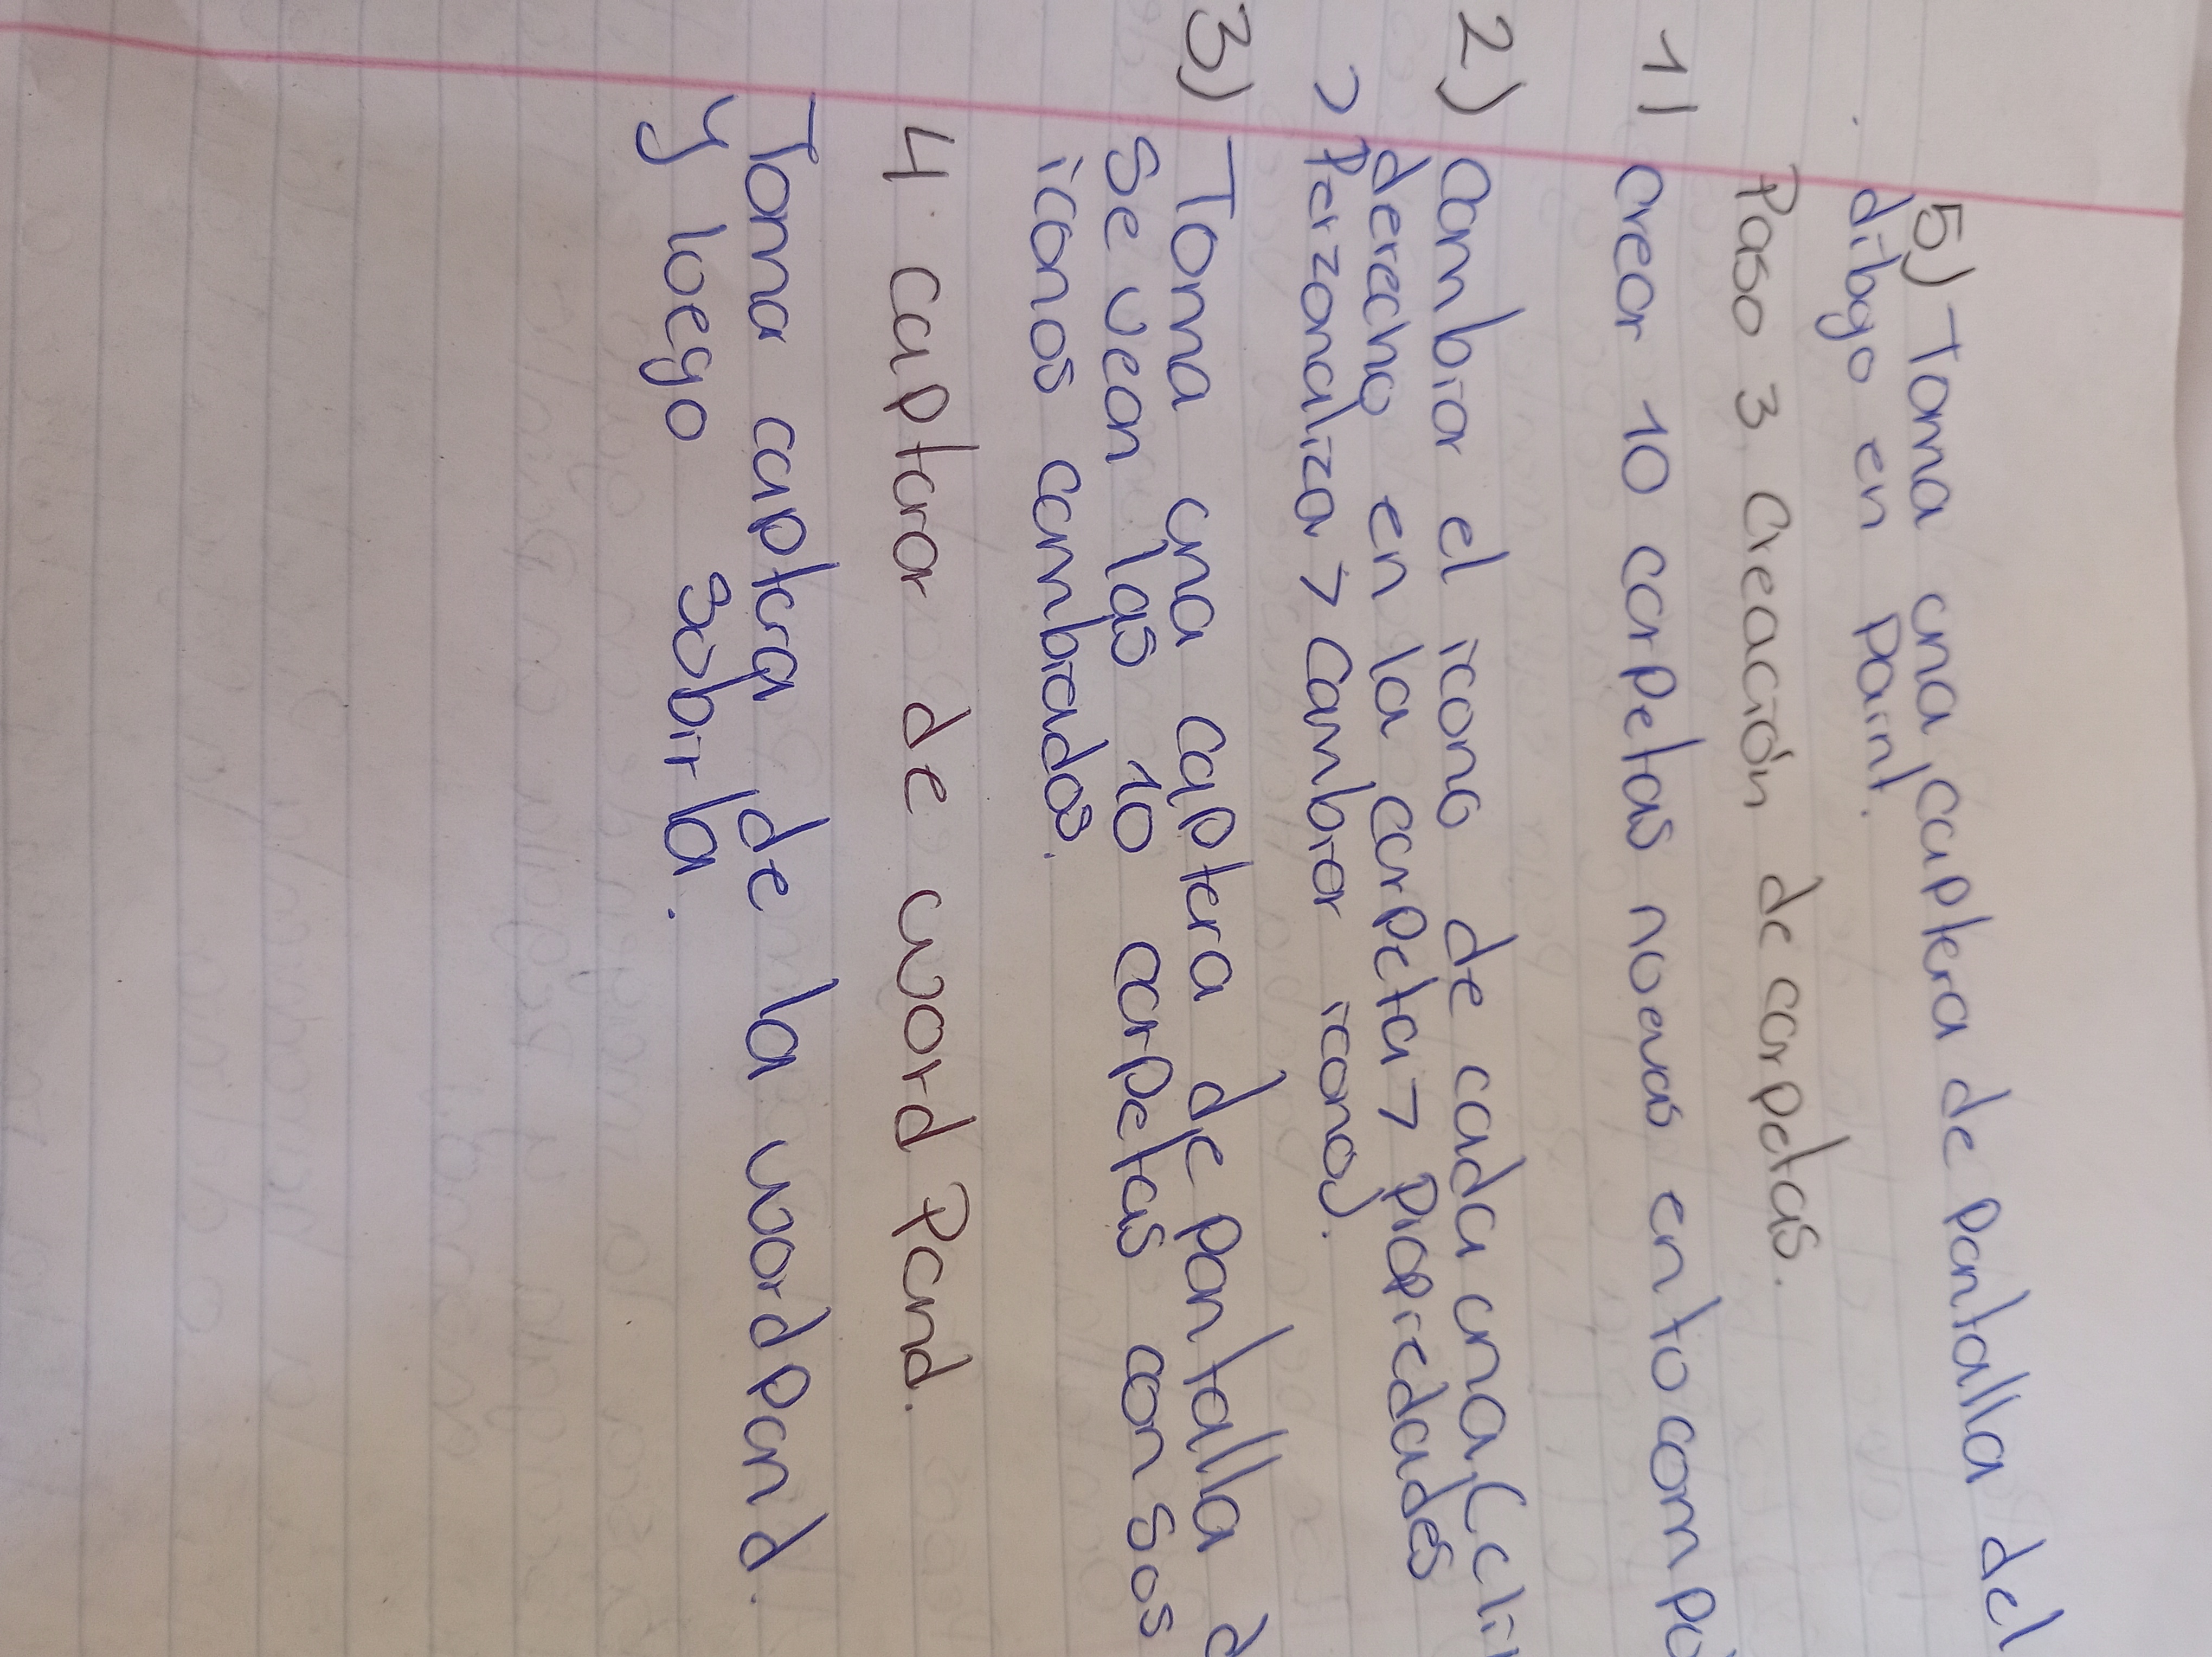 5) Toma una captura de pantalla del
dibgo en paint.
Paso 3. Creación de carpetas.
1) Crear 10 carpetas noevas en to compo
2) Cambiar el icono de cada una, (cli
derecho en la carpeta > propiedades
> Perzonaliza > Cambiar icono).
3) Toma una captura de pantalla d
Se vean las 10 carpetas con sos
iconos cambiados.
4. captarar de word Pand.
Toma captura de la word pand.
y loego sobirla.